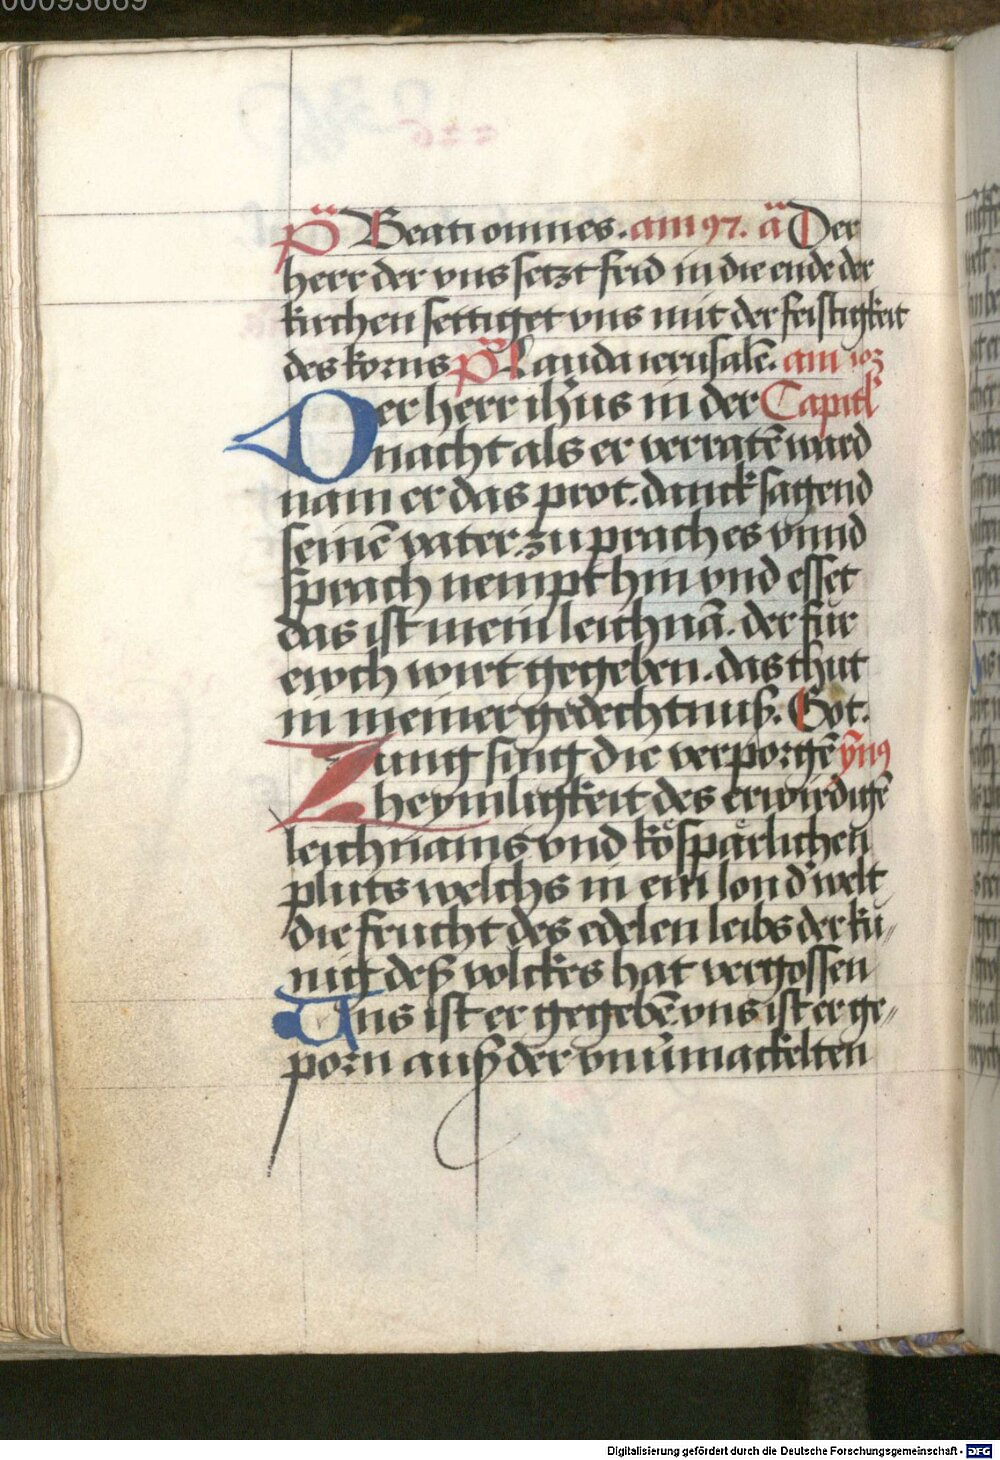 00093669
pͤs Beati omnes. am 97. aͤ Der
herr der vns setzt frid in die ende der
kirchen settiget vns mit der feistigkeit
des korns pͤs Lauda ierusalē. am 103
Der herr ihūs in der Capitl
nacht als er verratē ward
nam er das prot. danck sagend
seinē vater. zu prach es vnnd
sprach nempt hin vnd esset
das ist mein leichnā. der für
ewch wirt gegeben. das thut
in meiner gedechtnuß. Got.
Zung sing die verporgē ȳn9
heymligkeit des erwirdigē
leichnams vnd kößpärlichen
pluts welchs in ein lon d' welt
die frucht des edelen leibs der kü„
nig deß volckes hat vergossen
Uns ist er gegebē. vns ist er ge„
porn auß der vnuͤmackelten
Digitalisierung gefördert durch die Deutsche Forschungsgemeinschaft - DFG